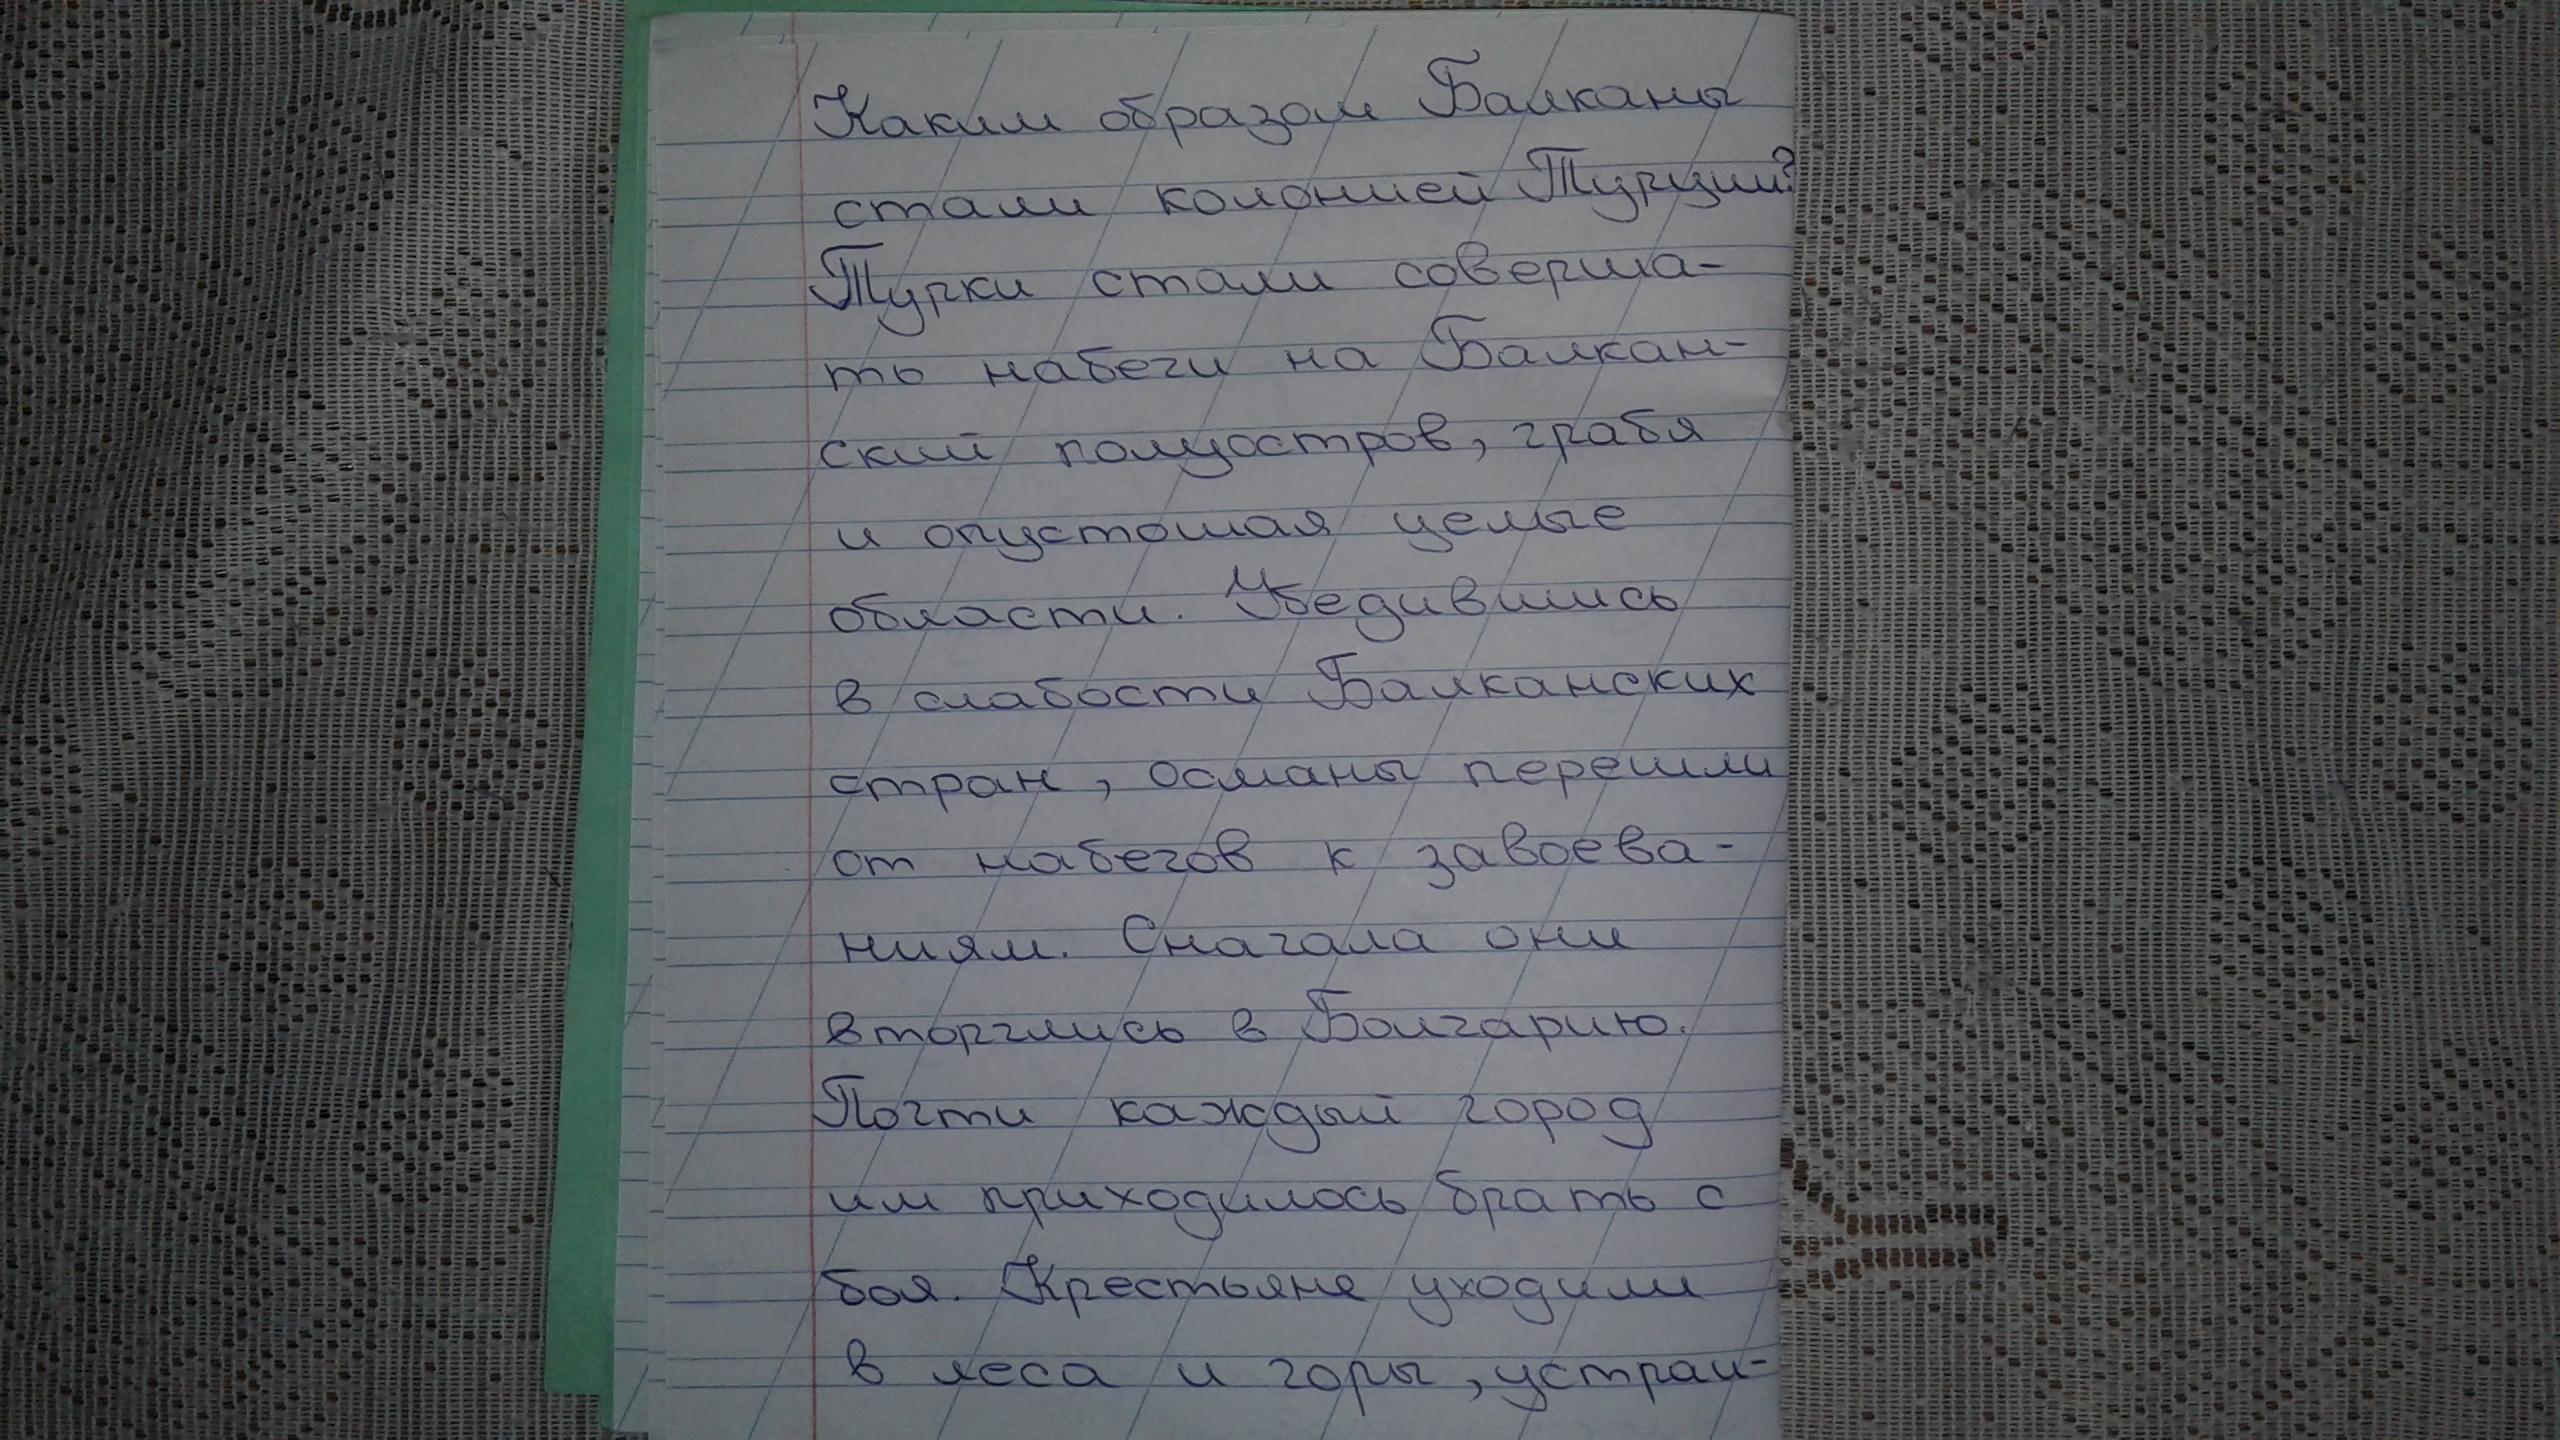 Каким образом Балканы
стали колонией Турции?
Турки стали соверша-
ть набеги на Балкан-
ский полуостров, грабя
и опустошая целые
области. Убедившись
в слабости Балканских
стран, османы перешли
от набегов к завоева-
ниям. Сначала они
вторглись в Болгарию.
Почти каждый город
им приходилось брать с
боя. Крестьяне уходили
в леса и горы, устраи-